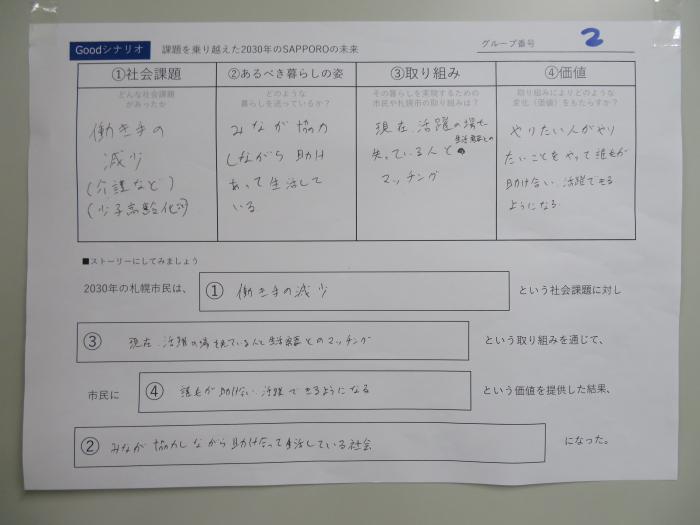 Goodシナリオ 課題を乗り越えた2030年のSAPPOROの未来 グループ番号 2
①社会課題 ②あるべき暮らしの姿 ③取り組み ④価値
どんな社会課題
があったか
どのような
暮らしを送っているか?
その暮らしを実現するための
市民や札幌市の取り組みは?
取り組みによりどのような
変化(価値)をもたらすか?
働き手の
減少
(介護など)
(少子高齢化的)
みなが協力
しながら助け
あって生活して
いる
現在、活躍の場を
失っている人と
マッチング
やりたい人がやり
たいことをやって誰もが
助け合い、活躍できる
ようになる
■ストーリーにしてみましょう
2030年の札幌市民は、 ① 働き手の減少 という社会課題に対し
③ 現在、活躍の場を失っている人と生活産業とのマッチング という取り組みを通じて、
市民に ④ 誰もが助け合い、活躍できるようになる という価値を提供した結果、
② みなが協力しながら助け合って生活している社会 になった。